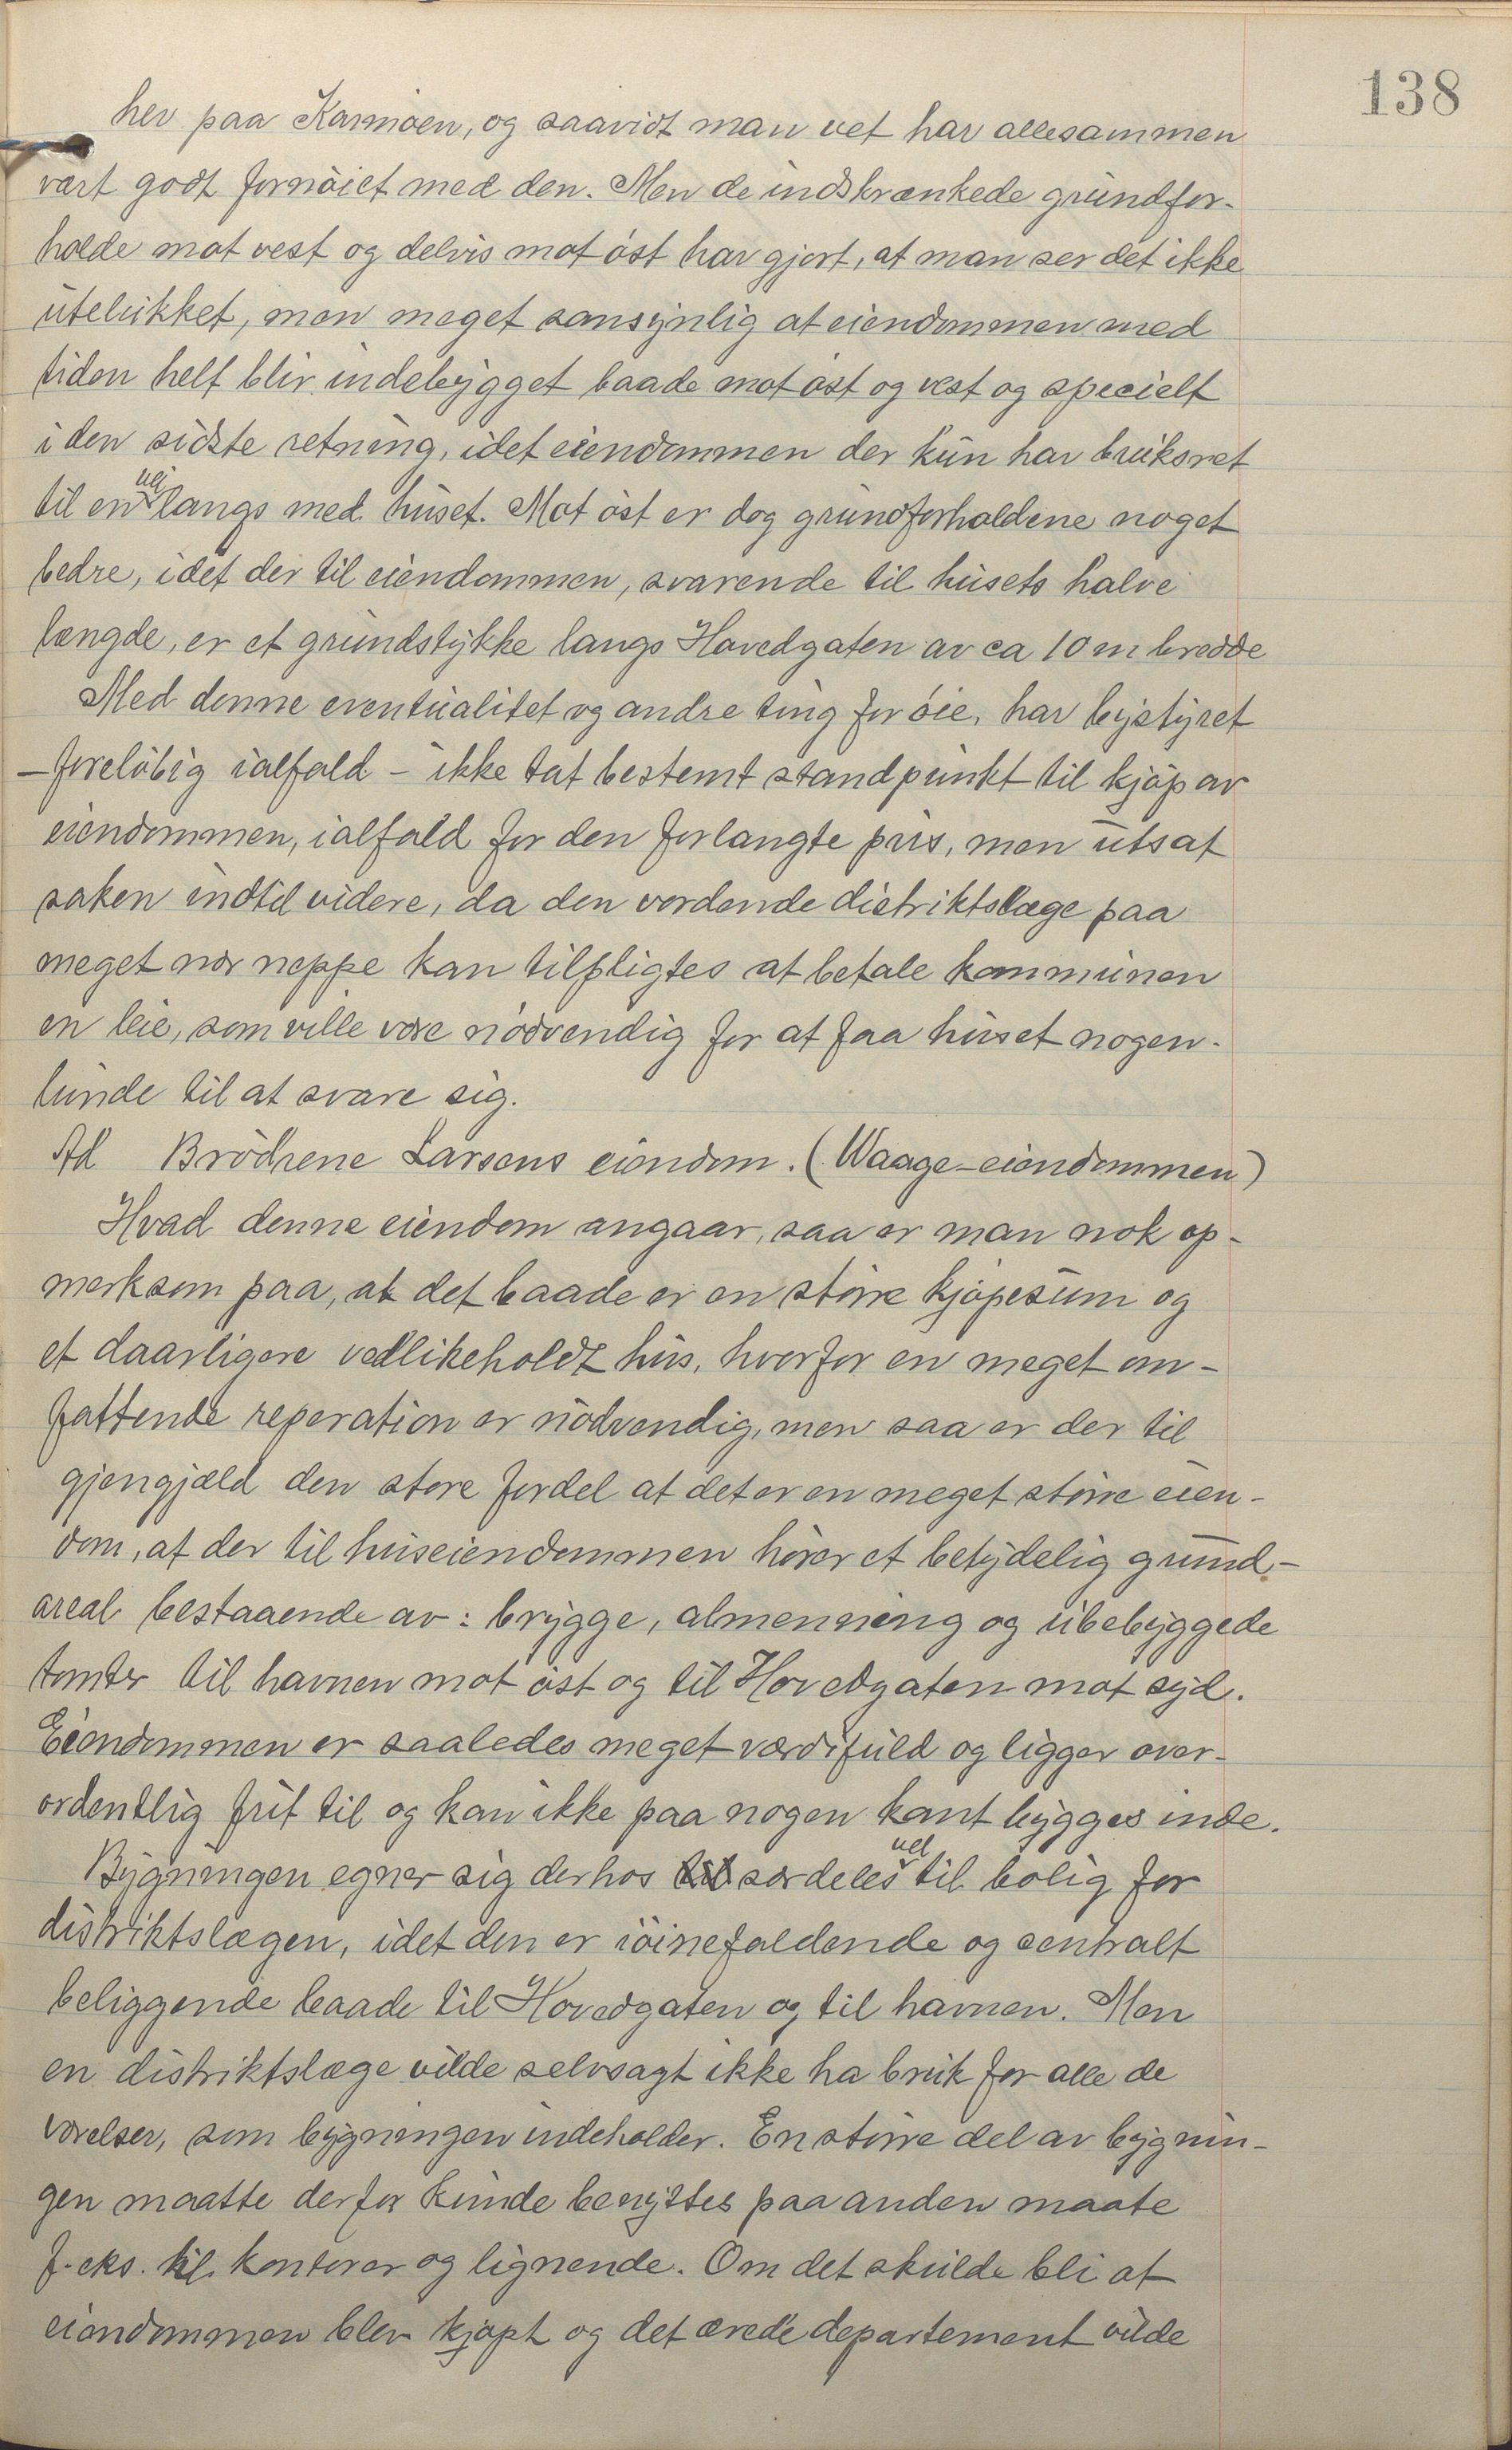 138
her paa Karmøen, og saavidt man vet har allesammen
vært godt fornøiet med den. Men de indskrænkede grundfor-
holde mot vest og delvis mot øst har gjort, at man ser det ikke
utelukket, men meget sansynlig at eiendommen med
tiden helt blir indebygget baade mot øst og vest og specielt
i den sidste retning, idet eiendommen der kun har bruksret
til en vei langs med huset. Mot øst er dog grundforholdene noget
bedre, idet der til eiendommen, svarende til husets halve
længde, er et grundstykke langs Hovedgaten av ca 10 m bredde
Med denne eventualitet og andre ting for øie, har bystyret
– foreløbig ialfald – ikke tat bestemt standpunkt til kjøp av
eiendommen, ialfald for den forlangte pris, men utsat
saken indtil videre, da den vordende distriktslæge paa
meget nær neppe kan tilpligtes at betale kommunen
en leie, som ville være nødvendig for at faa huset nogen-
lunde til at svare sig.
Ad Brødrene Larsens eiendom. (Waage-eiendommen)
Hvad denne eiendom angaar, saa er man nok op-
merksom paa, at det baade er en større kjøpesum og
et daarligere vedlikeholdt hus, hvorfor en meget om-
fattende reperation er nødvendig, men saa er der til
gjengjæld den store fordel at det er en meget større eien-
dom, at der til huseiendommen hører et betydelig grund-
areal bestaaende av: brygge, almenning og ubebyggede
tomter til havnen mot øst og til Hovedgaten mot syd.
Eiendommen er saaledes meget værdifuld og ligger over-
ordentlig frit til og kan ikke paa nogen kant bygges inde.
Bygningen egner sig derhos til særdeles vel til bolig for
distriktslægen, idet den er iøinefaldende og centralt
beliggende baade til Hovedgaten og til havnen. Men
en distriktslæge vilde selvsagt ikke ha bruk for alle de
værelser, som bygningen indeholder. En større del av bygnin-
gen maatte derfor kunde benyttes paa anden maate
f. eks. til kontorer og lignende. Om det skulde bli at
eiendommen blev kjøpt og det ærede departement vilde